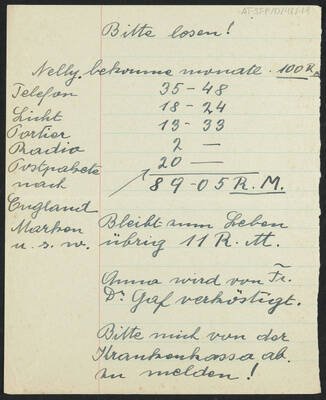 Bitte losen!
Nelly, bekomme monatl. 100 R.
Telefon 35-48
Licht 18-24
Portier 13-33
Radio 2 —
Postpakete 20 —
nach 89-05 R. M.
England
Marken Bleibt zum Leben
u. s. w. übrig 11 R. M.
Anna wird von Fr.
Dr. Gaf verköstigt.
Bitte mich von der
Krankenkassa ab.
zu melden!